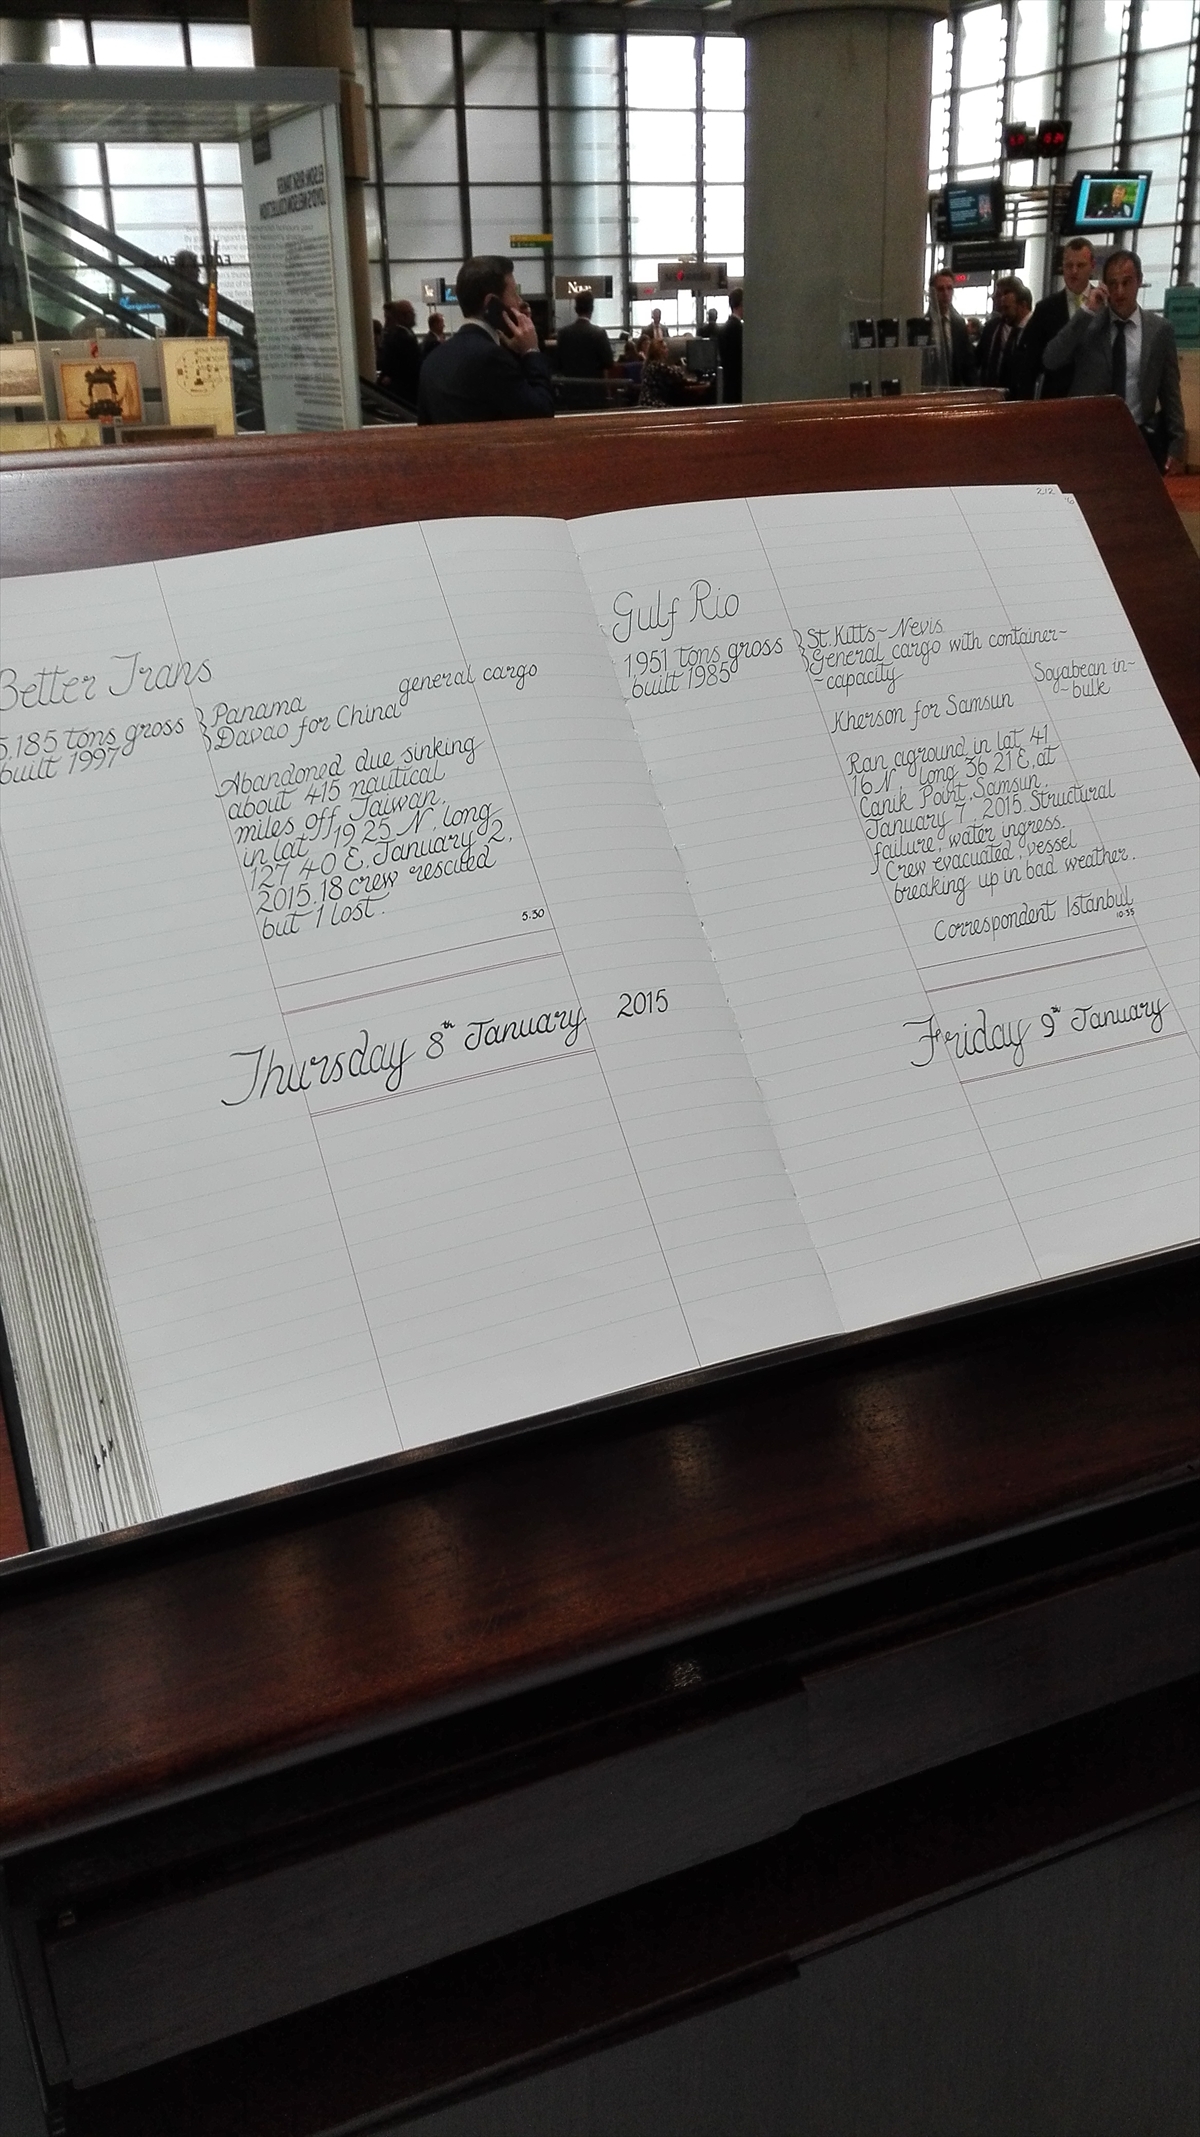 Better Trans
5,185 tons gross
built 1997
Panama
Davao for China
general cargo
Abandoned due sinking
about 415 nautical
miles off Taiwan,
in lat 19 25 N, long
127 40 E, January 2,
2015. 18 crew rescued
but 1 lost.
5.30
Thursday 8th January 2015
212
Gulf Rio
1951 tons gross
built 1985
St. Kitts-Nevis
General cargo with container-
-capacity
Kherson for Samsun
Soyabean in-
-bulk
Ran aground in lat 41
16 N long 36 21 E, at
Canik Point, Samsun,
January 7, 2015. Structural
failure, water ingress.
Crew evacuated, vessel
breaking up in bad weather.
Correspondent Istanbul
10.35
Friday 9th January